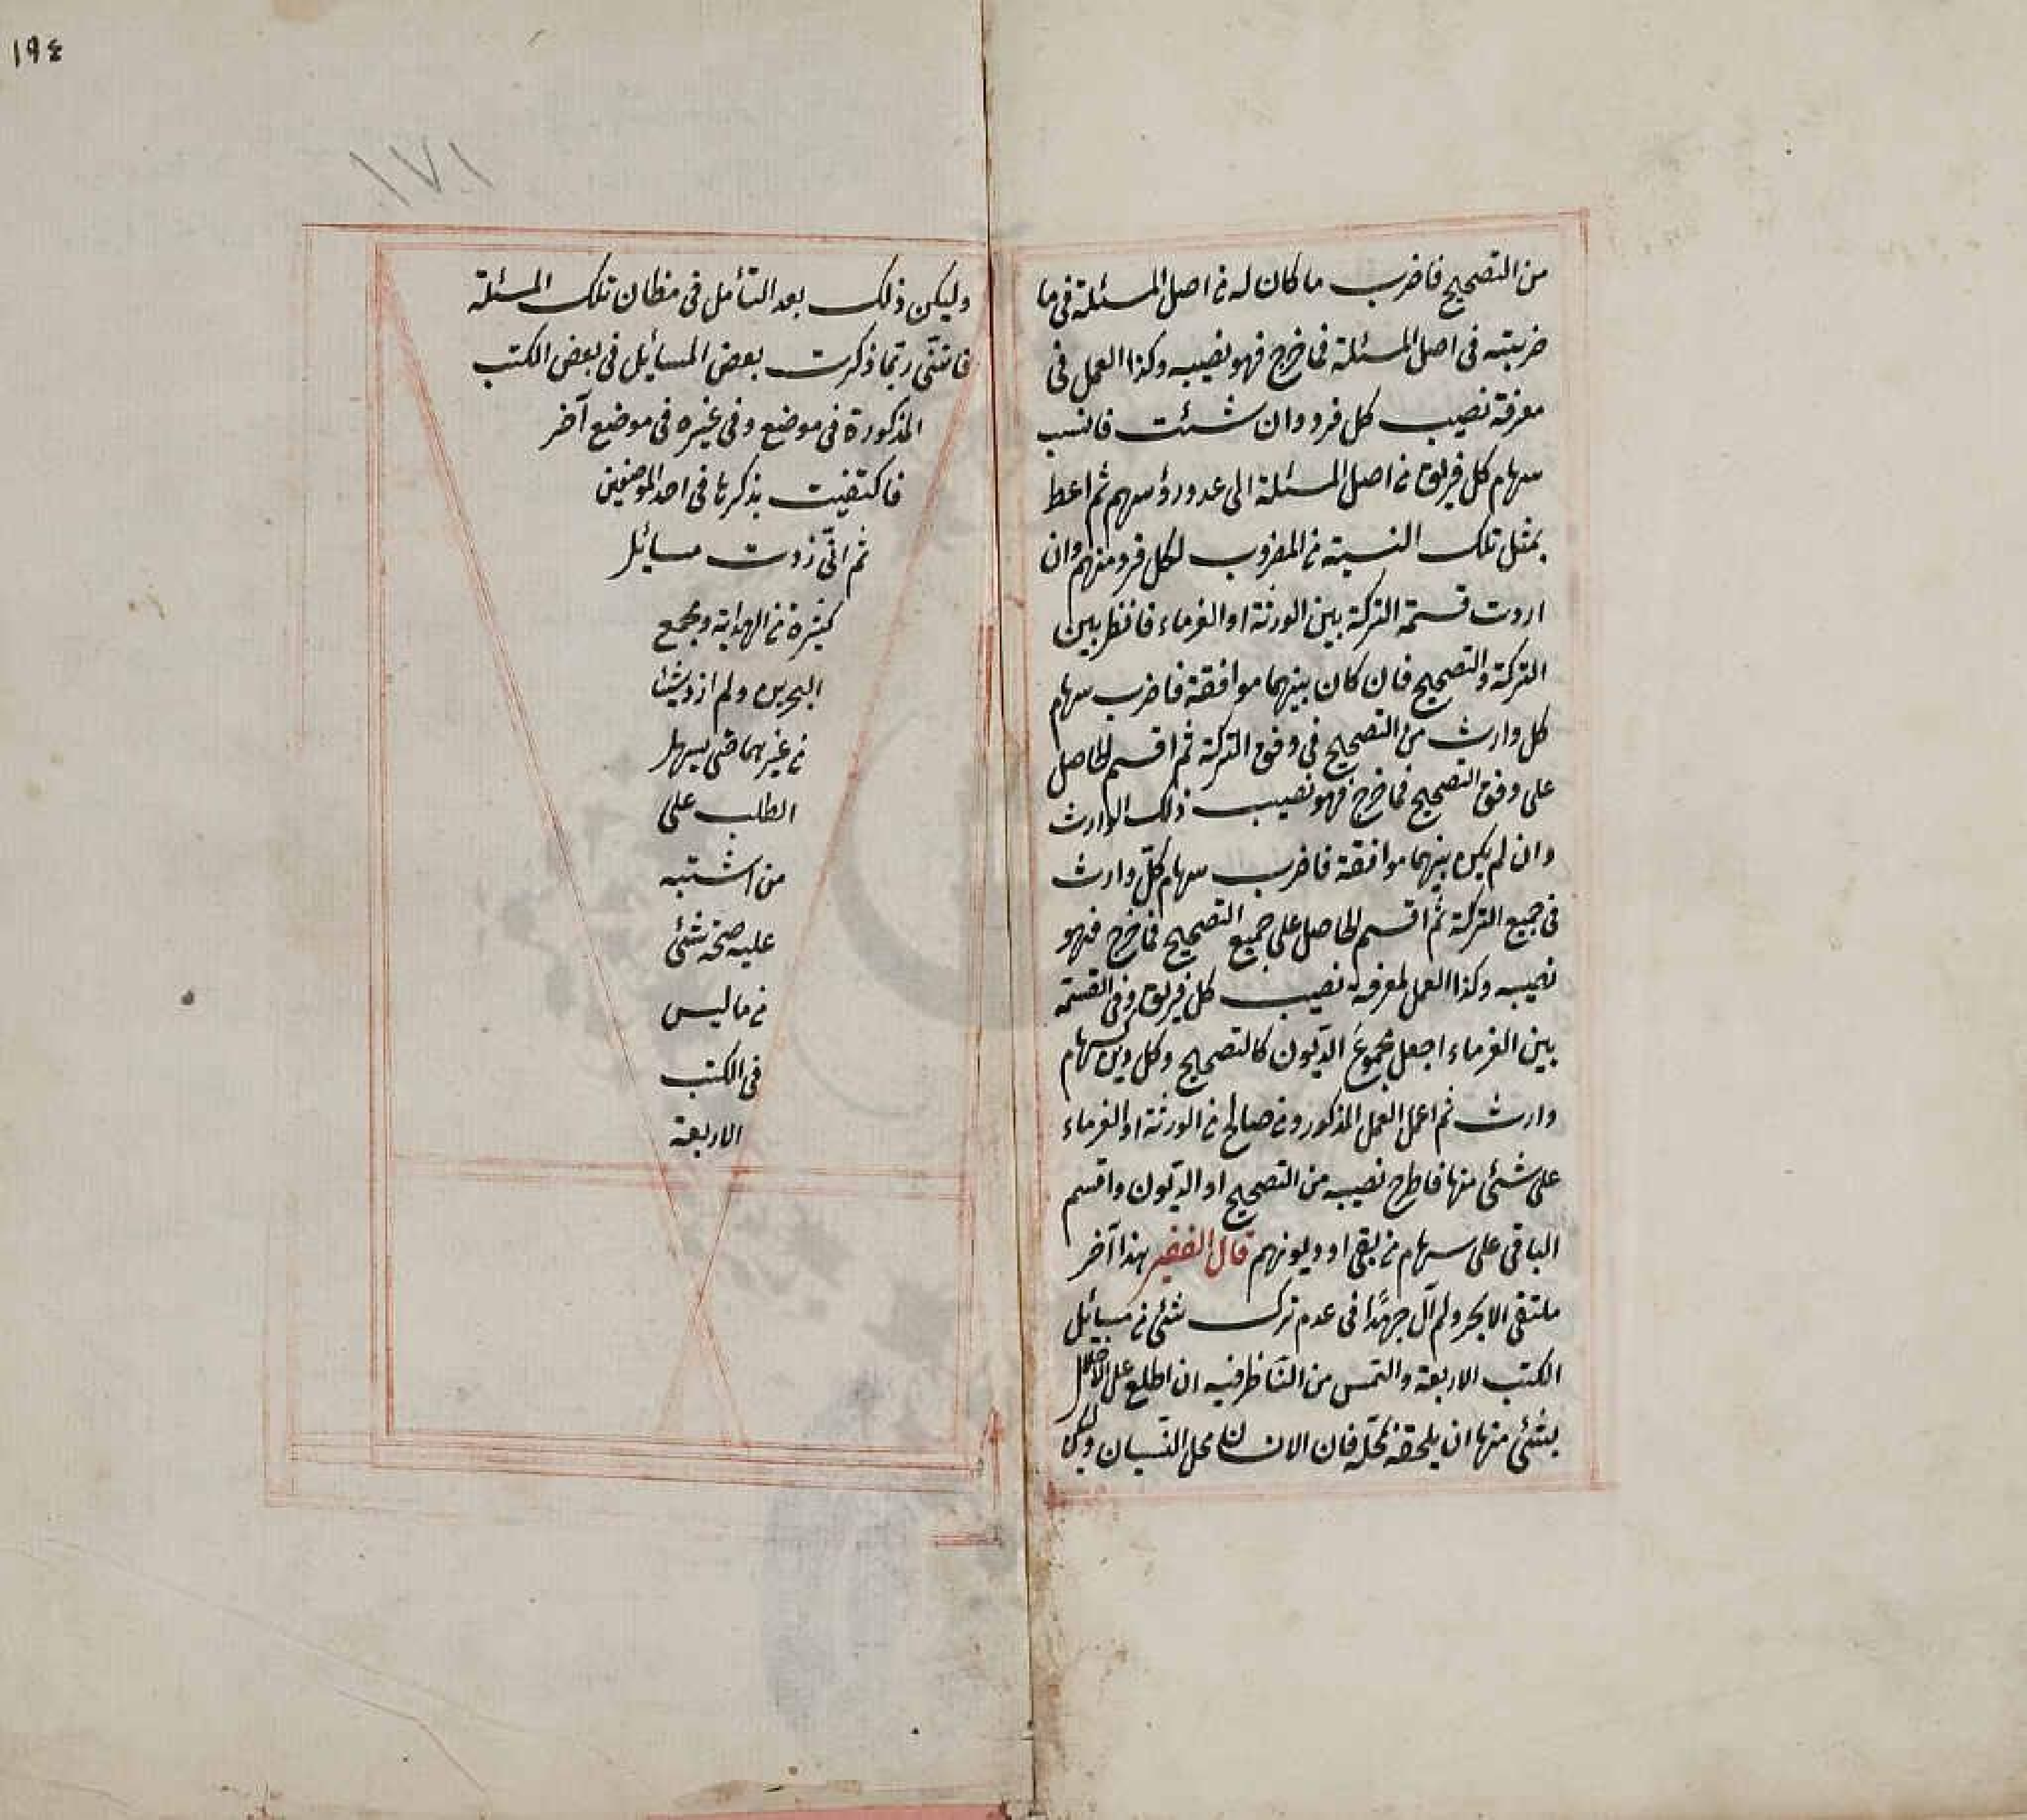 من التصحيح فاضرب ما كان له من اصل المسئلة فى ما
ضربته فى اصل المسئلة فما خرج فهو نصيبه وكذا العمل فى
معرفة نصيب كل فرد وان شئت فانسب
سهام كل فريق من اصل المسئلة الى عدد رؤسهم ثم اعط
بمثل تلك النسبة من المضروب لكل فرد منهم وان
اردت قسمة التركة بين الورثة او الغرماء فانظر بين
التركة والتصحيح فان كان بينهما موافقة فاضرب سهام
كل وارث من التصحيح فى وفق التركة ثم اقسم الحاصل
على وفق التصحيح فما خرج فهو نصيب ذلك الوارث
وان لم يكن بينهما موافقة فاضرب سهام كلّ وارث
فى جميع التركة ثم اقسم الحاصل على جميع التصحيح فما خرج فهو
نصيبه وكذا العمل لمعرفة نصيب كل فريق وفى القسمة
بين الغرماء اجعل مجموعَ الديون كالتصحيح وكل دين كسهام
وارث ثم اعمل العمل المذكور ومن صالح من الورثة او الغرماء
على شئ منها فاطرح نصيبه من التصحيح او الديون واقسم
الباقى على سهام من بقى او ديونهم قال الفقير هذا آخر
ملتقى الابحر ولم آل جهدًا فى عدم ترك شئ من مسائل
الكتب الاربعة والتمس من الناظر فيه ان اطلع على الاخلال
بشئ منها ان يلحقه بمحلّه فان الانسان محل النسيان وليكن
١٩٤
١٧١
وليكن ذلك بعد التأمل فى مظان تلك المسئلة
فانّنى ربّما ذكرت بعض المسائل فى بعض الكتب
المذكورة فى موضع وفى غيره فى موضع آخر
فاكتفيت بذكرها فى احد الموضعين
ثم انّى زدت مسائل
كثيرة من الهداية ومجمع
البحرين ولم ازد شيئا
من غيرهما حتى يسهل
الطلب على
من اشتبه
عليه صحّة شئ
من ما ليس
فى الكتب
الاربعة